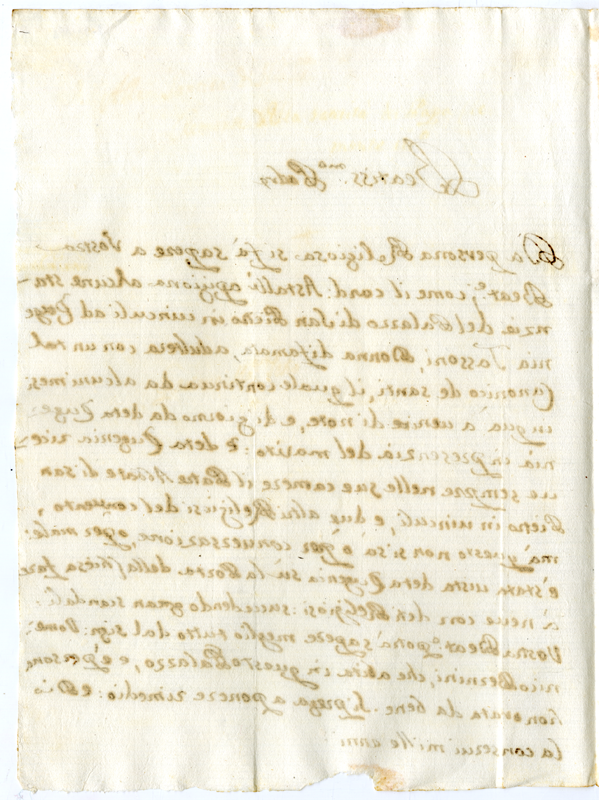 Beatiss.mo Padre
Da persona Religiosa si fà sapere a Vostra
Beat.e, come il card: Astalli appigiona alcune sta-
nzie del Palazzo di San Pietro in vinculi ad Euge
nia Tassoni, Donna difamata, adultera con un tal
Canonico de santi, il quale continua da alcuni mesi
in qua à venire di note, e, di giorno da deta Euge
nia in presenzia del marito: e deta Eugenia rice-
ue sempre nelle sue camere il Patre Abbate di san
Pietro in vinculi, e due altri Religiosi del convento,
mà questo non si sà ò per conversazione, o per male:
è stata uista deta Eugenia sù la Porta della Chiesa fare
à neve con deti Religiosi: succedendo gran scandali:
Vostra Beat.e potrà sapere meglio tutto dal sign: Dome:
nico Bernini, che abita in questo Palazzo, e è persona
honorata da bene. Si prega a ponere rimedio: e Dio
la conservi mille anni